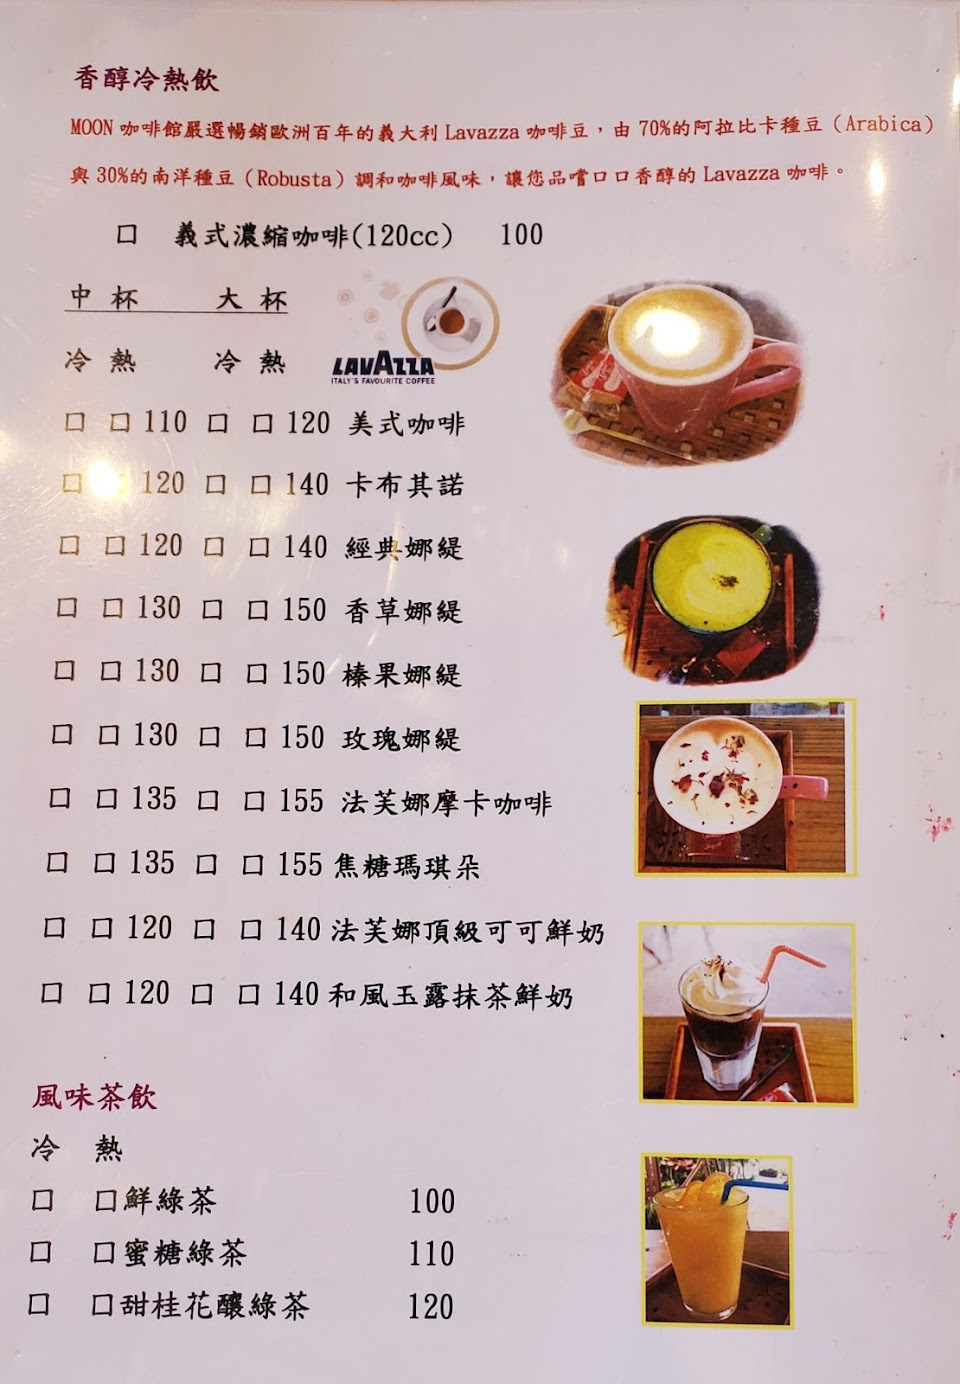 香醇冷熱飲
MOON 咖啡館嚴選暢銷歐洲百年的義大利 Lavazza 咖啡豆，由 70%的阿拉比卡種豆（Arabica）
與 30%的南洋種豆（Robusta）調和咖啡風味，讓您品嚐口口香醇的 Lavazza 咖啡。
口 義式濃縮咖啡(120cc) 100
中 杯 大 杯
冷 熱 冷 熱
LAVAZZA
ITALY'S FAVOURITE COFFEE
口 口 110 口 口 120 美式咖啡
口 口 120 口 口 140 卡布其諾
口 口 120 口 口 140 經典娜緹
口 口 130 口 口 150 香草娜緹
口 口 130 口 口 150 榛果娜緹
口 口 130 口 口 150 玫瑰娜緹
口 口 135 口 口 155 法芙娜摩卡咖啡
口 口 135 口 口 155 焦糖瑪琪朵
口 口 120 口 口 140 法芙娜頂級可可鮮奶
口 口 120 口 口 140 和風玉露抹茶鮮奶
風味茶飲
冷 熱
口 口鮮綠茶 100
口 口蜜糖綠茶 110
口 口甜桂花釀綠茶 120